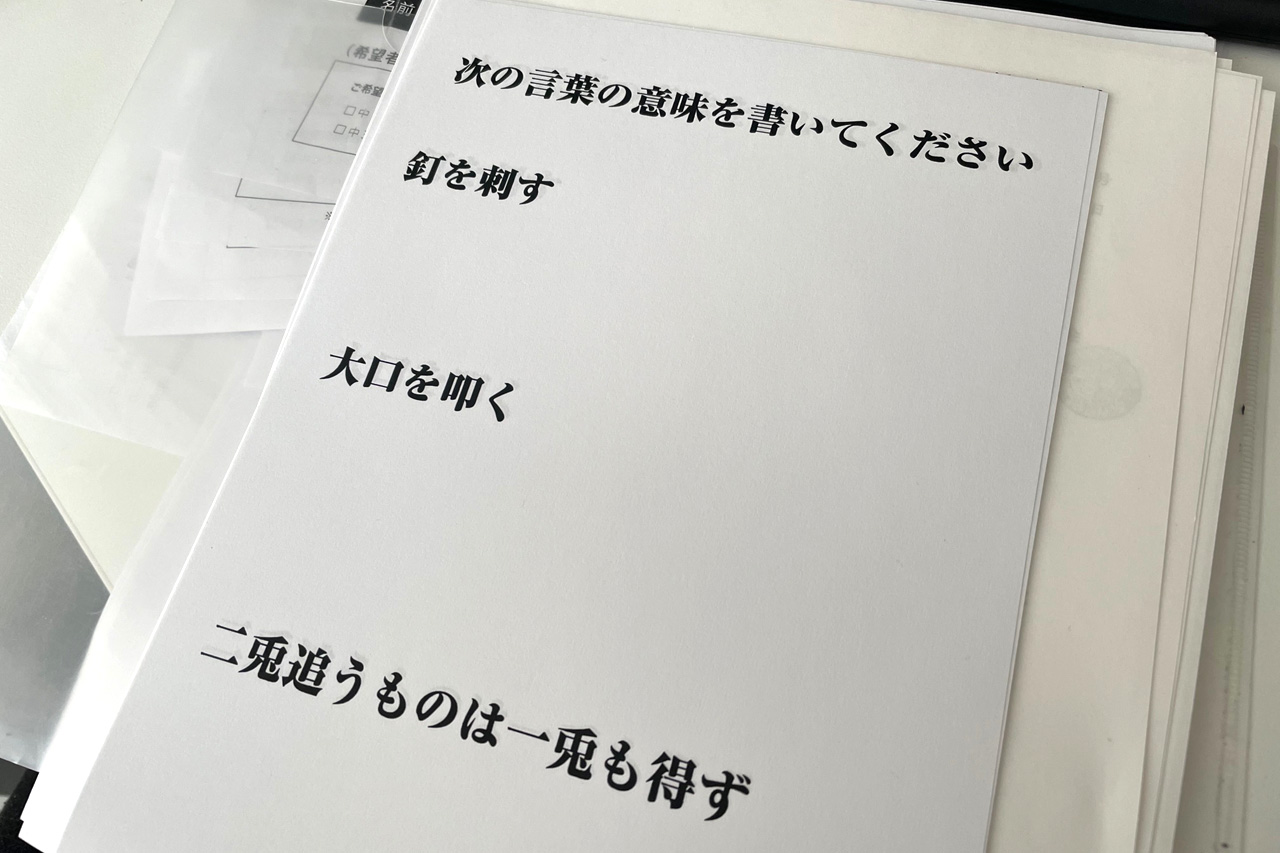 次の言葉の意味を書いてください
釘を刺す
大口を叩く
二兎追うものは一兎も得ず
名前
(希望者
ご希望
□中
□中
※